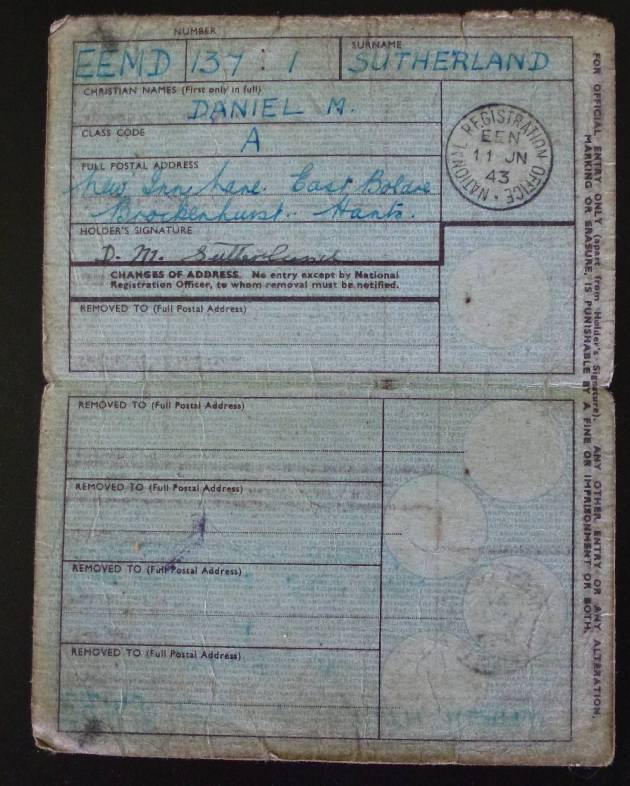 NUMBER
EEMD 137 : 1
SURNAME
SUTHERLAND
CHRISTIAN NAMES (First only in full)
DANIEL M.
CLASS CODE
A
FULL POSTAL ADDRESS
New Inn Lane. East Boldre
Brockenhurst. Hants.
HOLDER'S SIGNATURE
D. M. Sutherland
NATIONAL REGISTRATION OFFICE
EEN
11 JN
43
CHANGES OF ADDRESS. No entry except by National
Registration Officer, to whom removal must be notified.
REMOVED TO (Full Postal Address)
REMOVED TO (Full Postal Address)
REMOVED TO (Full Postal Address)
REMOVED TO (Full Postal Address)
REMOVED TO (Full Postal Address)
FOR OFFICIAL ENTRY ONLY (apart from Holder's Signature). ANY OTHER ENTRY OR ANY ALTERATION,
MARKING OR ERASURE, IS PUNISHABLE BY A FINE OR IMPRISONMENT OR BOTH.